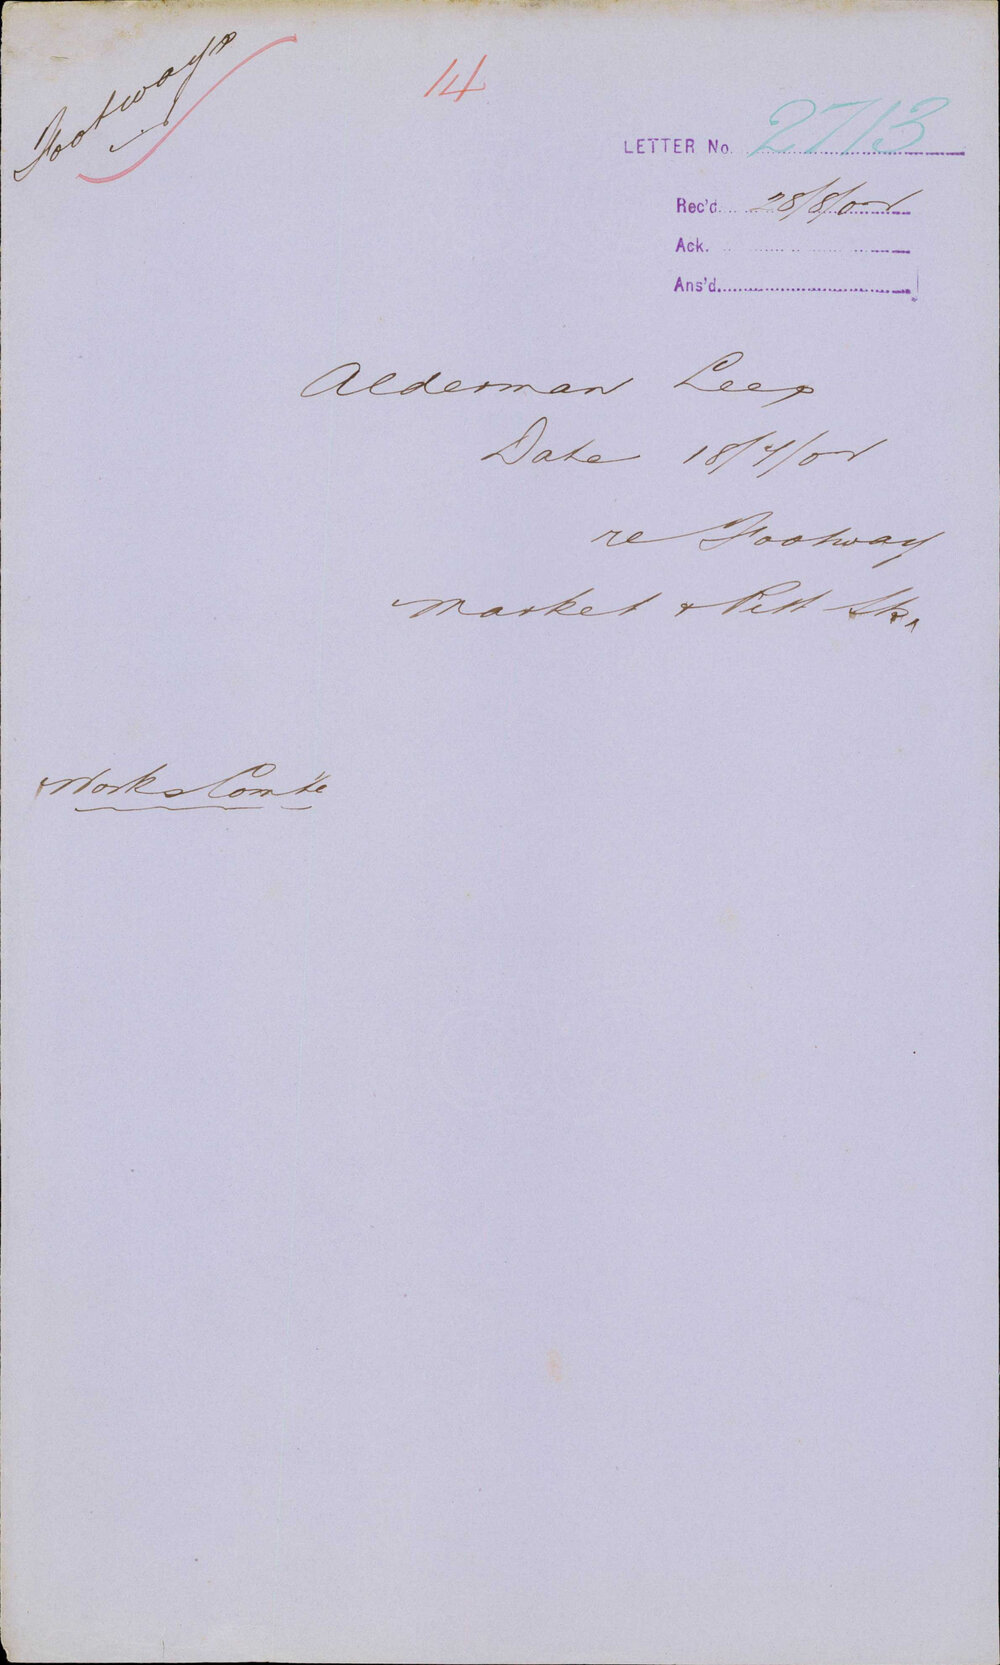 Footways
14
LETTER No. 2713
Rec'd. 28/8/02
Ack.
Ans'd.
Alderman Lees
Date 18/7/02
re Footway
Market & Pitt Sts.
Works Comtte